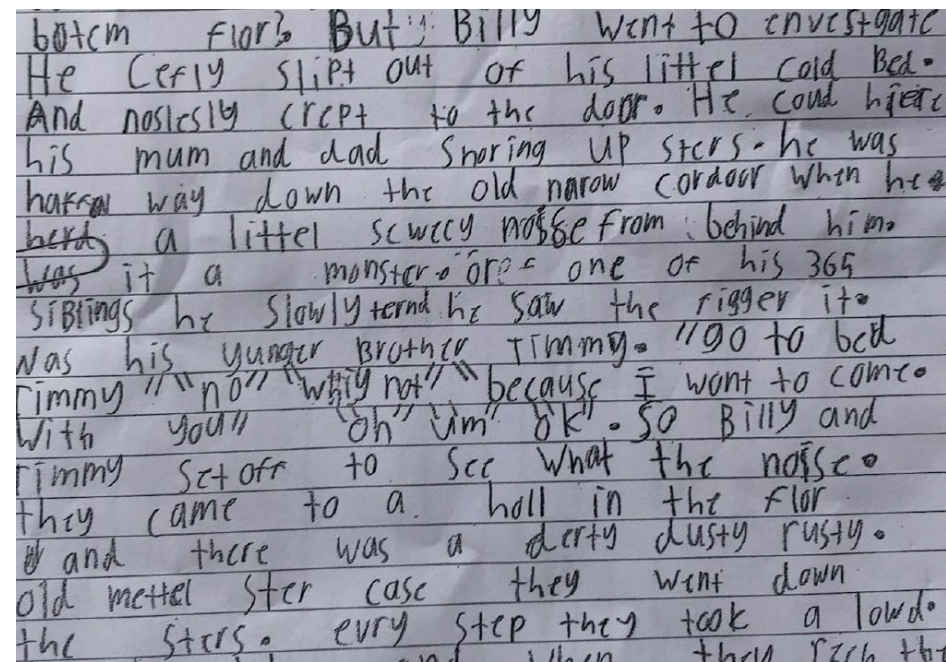 botem flor? But Billy went to envestgate
He Cerfly slipt out of his littel cold Bed.
And noslesly crept to the door. He coud
his mum and dad Snoring up sters. he was
way down the old narow cordoor when he
herd a littel scweey from behind him.
was it a monster. or one of his 365
siblings he slowly ternd he saw the rigger it.
was his yunger Brother Timmy. "go to bed
Timmy" "no" "whiy not" "because I wont to come.
With you" "oh" um" ok". So Billy and
Timmy set off to see what the noise.
they came to a holl in the flor
and there was a derty dusty rusty.
old mettel ster case they went down
the sters. evry step they took a lowd.
and when they rech the